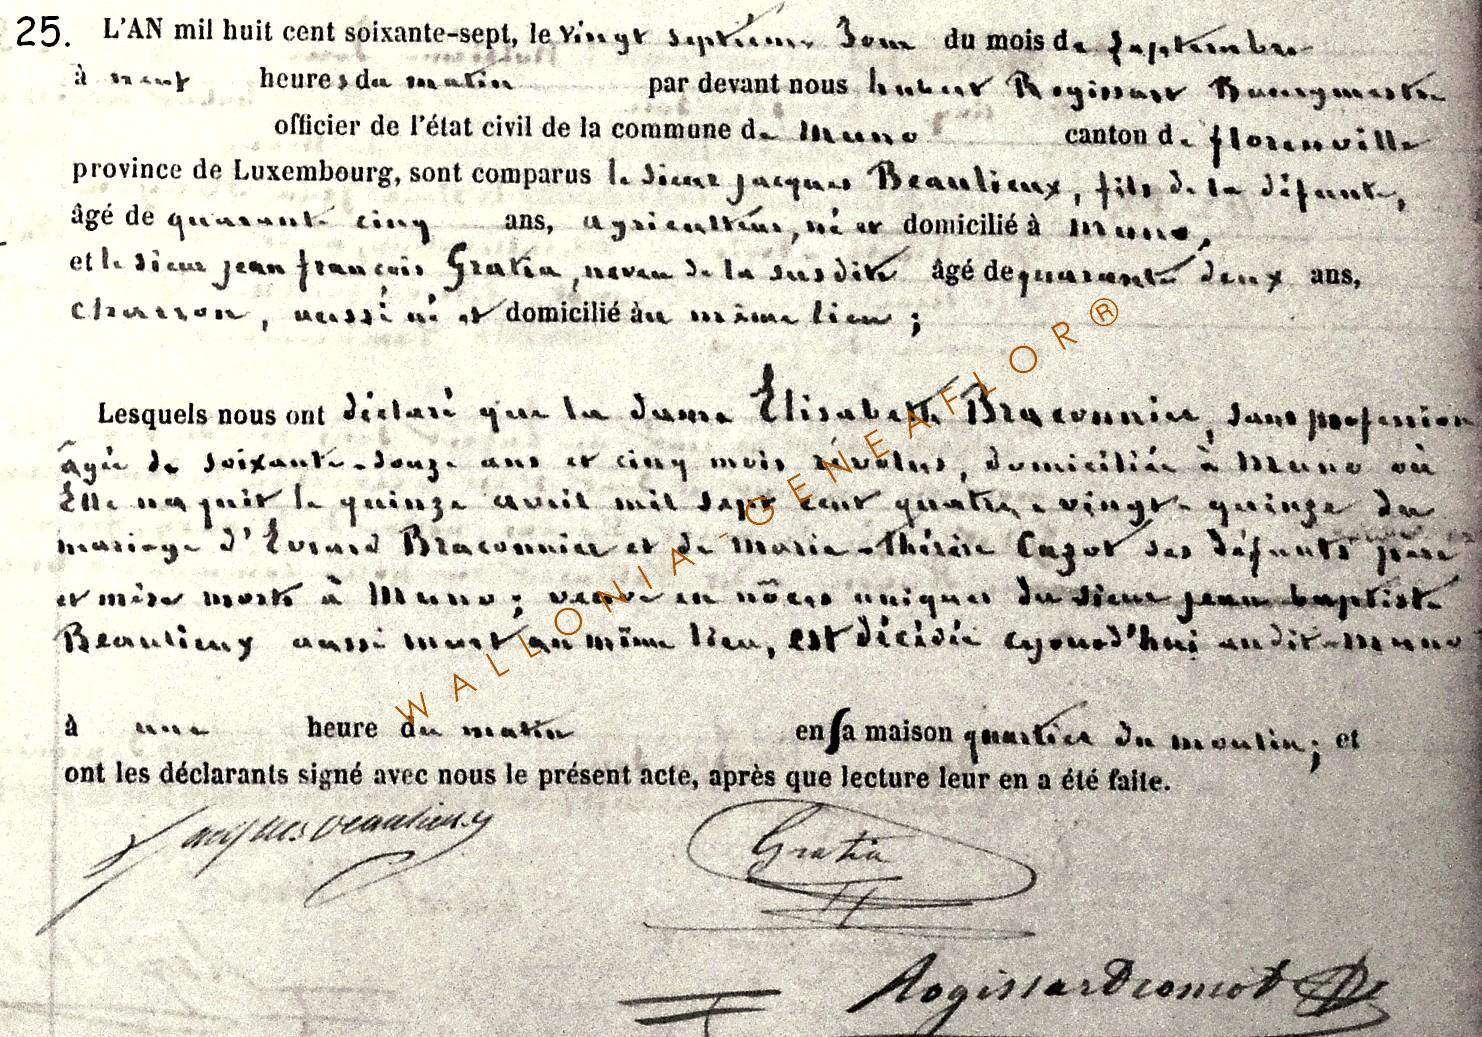 25. L'AN mil huit cent soixante-sept, le vingt septième Jour du mois de Septembre
à neuf heures du matin par devant nous hubert Rogissart Bourgmestre
officier de l'état civil de la commune de Muno canton de florenville
province de Luxembourg, sont comparus le sieur jacques Beaulieux, fils de la défunte,
âgé de quarante cinq ans, agriculteur, né et domicilié à Muno,
et le sieur jean françois Gratia, neveu de la susdite âgé de quarante deux ans,
charron, aussi né et domicilié au même lieu ;
Lesquels nous ont déclaré que la dame Elisabeth Braconnier, sans profession
âgée de soixante-douze ans et cinq mois révolus, domiciliée à Muno où
Elle naquit le quinze avril mil sept cent quatre-vingt-quinze du
mariage d'Evrard Braconnier et de Marie-Thérèse Cazot ses défunts père
et mère morts à Muno ; veuve en nôces uniques du sieur jean baptiste
Beaulieux aussi mort au même lieu, est décédée aujourd'hui au dit-Muno
à une heure du matin en sa maison quartier du moulin ; et
ont les déclarants signé avec nous le présent acte, après que lecture leur en a été faite.
Jacques beaulieux Gratia
Rogissart
WALLONIA-GENEAFLOR®